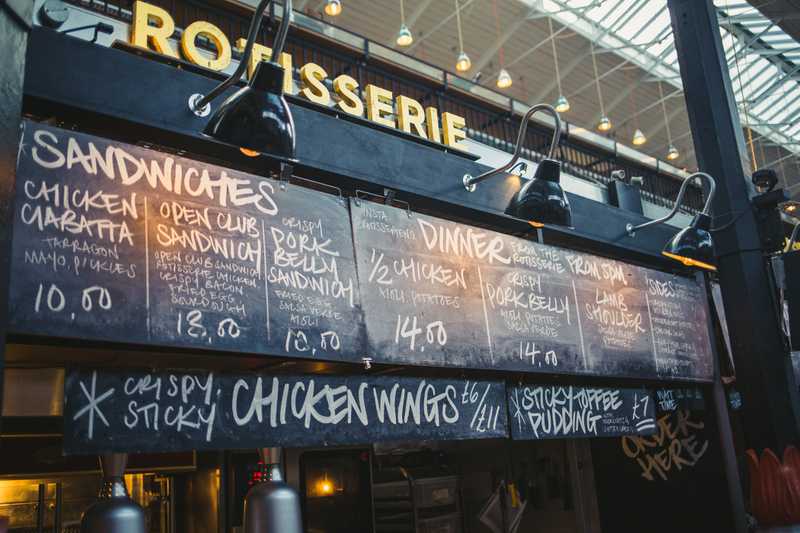 ROTISSERIE
SANDWICHES
CHICKEN
CIABATTA
TARRAGON
MAYO, PICKLES
10.00
OPEN CLUB
SANDWICH
OPEN CLUB SANDWICH
ROTISSERIE CHICKEN
CRISPY BACON
FRIED EGG
SOURDOUGH
13.00
CRISPY
PORK
BELLY
SANDWICH
FRIED EGG
SALSA VERDE
AIOLI
DINNER FROM THE
ROTISSERIE FROM 5PM
1/2 CHICKEN
AIOLI POTATOES
14.00
CRISPY
PORK BELLY
AIOLI POTATOES
SALSA VERDE
14.00
LAMB
SHOULDER
SIDES
* CRISPY
STICKY
CHICKEN WINGS £6/£11
* STICKY TOFFEE
PUDDING
£7
WAIT
TIME
ORDER
HERE